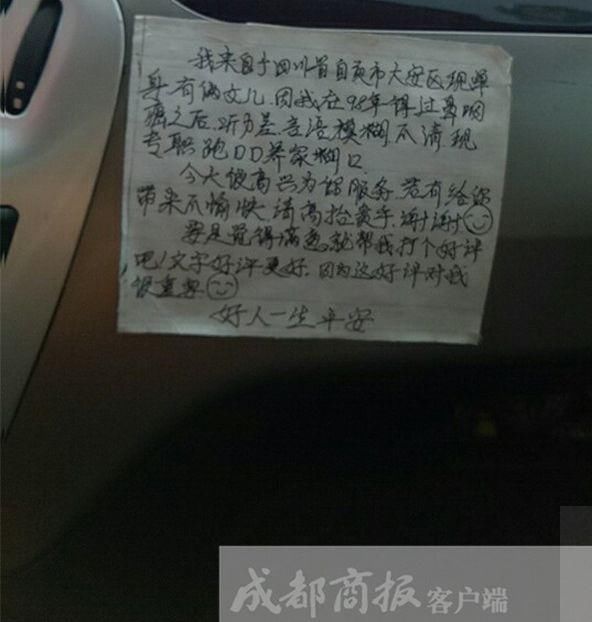 我来自于四川省自贡市大安区现单
身有俩女儿.因我在98年得过鼻咽
癌之后.听力差言语模糊不清现
专职跑DD养家糊口.
今天很高兴为您服务.若有给您
带来不愉快.请高抬贵手.谢谢
要是觉得满意就帮我打个好评
吧!文字好评更好.因为这好评对我
很重要
好人一生平安
成都商报客户端